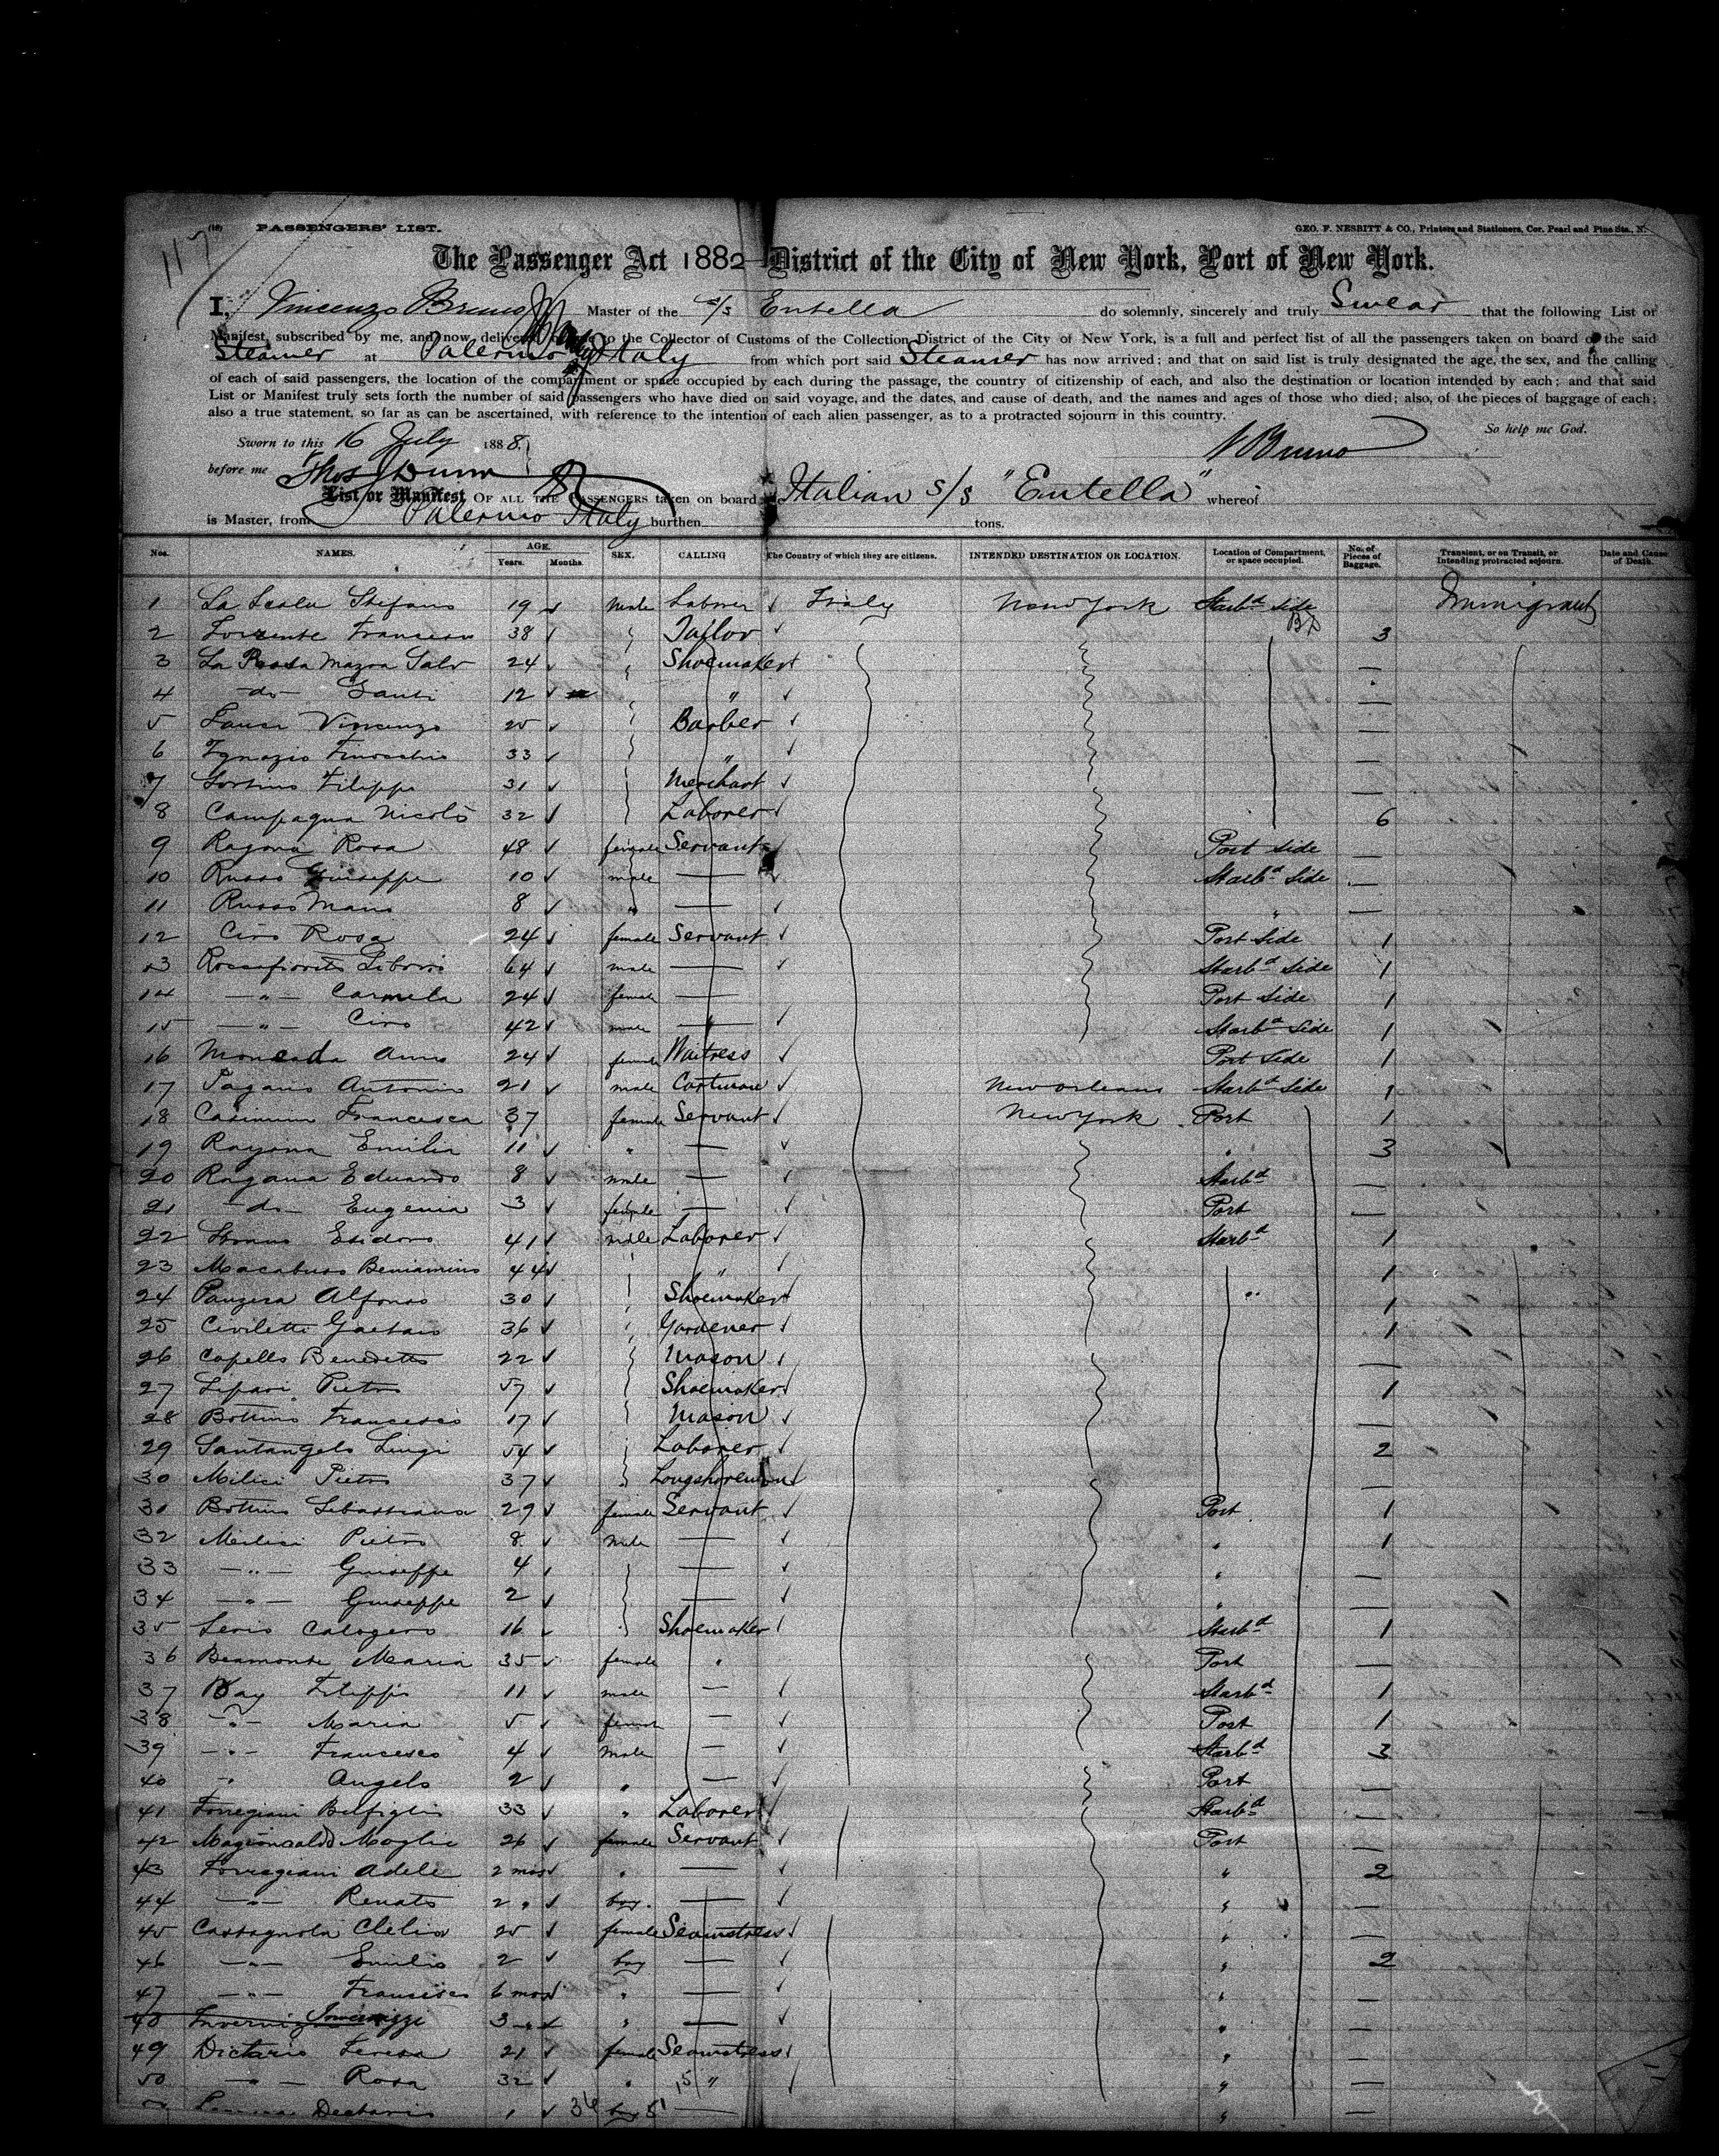 117
(18) PASSENGERS' LIST.
GEO. F. NESBITT & CO., Printers and Stationers, Cor. Pearl and Pine Sts., N.
The Passenger Act 1882 District of the City of New York, Port of New York.
I, Vincenzo Bruno Master of the s/s Entella do solemnly, sincerely and truly Swear that the following List or
Manifest, subscribed by me, and now delivered to the Collector of Customs of the Collection District of the City of New York, is a full and perfect list of all the passengers taken on board of the said
Steamer at Palermo Italy from which port said Steamer has now arrived; and that on said list is truly designated the age, the sex, and the calling
of each of said passengers, the location of the compartment or space occupied by each during the passage, the country of citizenship of each, and also the destination or location intended by each; and that said
List or Manifest truly sets forth the number of said passengers who have died on said voyage, and the dates, and cause of death, and the names and ages of those who died; also, of the pieces of baggage of each;
also a true statement, so far as can be ascertained, with reference to the intention of each alien passenger, as to a protracted sojourn in this country.
So help me God.
Sworn to this 16 July 1888.
V Bruno
before me Thos J Dunn
List or Manifest OF ALL THE PASSENGERS taken on board the Italian s/s "Entella" whereof
is Master, from Palermo Italy burthen tons.
Nos. NAMES. AGE. Years. Months. SEX. CALLING The Country of which they are citizens. INTENDED DESTINATION OR LOCATION. Location of Compartment, or space occupied. No. of Pieces of Baggage. Transient, or on Transit, or Intending protracted sojourn. Date and Cause of Death.
1 La Scala Stefano 19 male Laborer Italy New York Starbd side Immigrant
2 Francesco 38 Tailor 3
3 La Mazza Salv 24 Shoemaker —
4 -do- Santi 12 " —
5 Vincenzo 25 Barber —
6 Ignazio 33 " —
7 Sortino Filippo 31 Merchant —
8 Campagna Nicolo 32 Laborer 6
9 Ragona Rosa 48 female Servant Port side —
10 Russo Giuseppe 10 male — Starbd side —
11 Russo Mario 8 " — " —
12 Ciro Rosa 24 female Servant Port side 1
13 Roccafiorito Liborio 64 male — Starbd side 1
14 -"- Carmela 24 female — Port side 1
15 -"- Ciro 42 male — Starbd side 1
16 Moncada Anna 24 female Waitress Port side 1
17 Pagano Antonio 21 male New Orleans Starbd side 1
18 Francesca 37 female Servant New York Port 1
19 Ragona Emilia 11 " — " 3
20 Ragona Eduardo 8 male — Starbd —
21 -do- Eugenia 3 female — Port —
22 Esidoro 41 male Laborer Starbd 1
23 Macaluso Beniamino 44 " 1
24 Panzera Alfonso 30 Shoemaker " 1
25 Civiletti Gaetano 36 Gardener 1
26 Capello Benedetto 22 Mason —
27 Lipari Pietro 57 Shoemaker 1
28 Bottino Francesco 17 Mason —
29 Santangelo Luigi 54 Laborer 2
30 Milici Pietro 37 Longshoreman —
31 Bottino Sebastiana 29 female Servant Port 1
32 Milici Pietro 8 male — " 1
33 -"- Giuseppe 4 — " —
34 -"- Giuseppe 2 — " —
35 Calogero 16 Shoemaker Starbd 1
36 Beamonte Maria 35 female " Port —
37 Bay Filippo 11 male — Starbd 1
38 -"- Maria 5 female — Port 1
39 -"- Francesco 4 male — Starbd 3
40 " Angelo 2 " — Port —
41 33 " Laborer Starbd —
42 Moglie 26 female Servant Port —
43 Adele 2 mos " — " 2
44 -"- Renato 2 " boy — " —
45 Castagnola Clelia 25 female Seamstress " —
46 -"- Emilio 2 boy — " 2
47 -"- Francisco 6 mos " — " —
48 Invernizzi 3 " — " —
49 Dictario Teresa 21 female Seamstress " —
50 -"- Rosa 32 " " " —
1 36 boy 51 — "